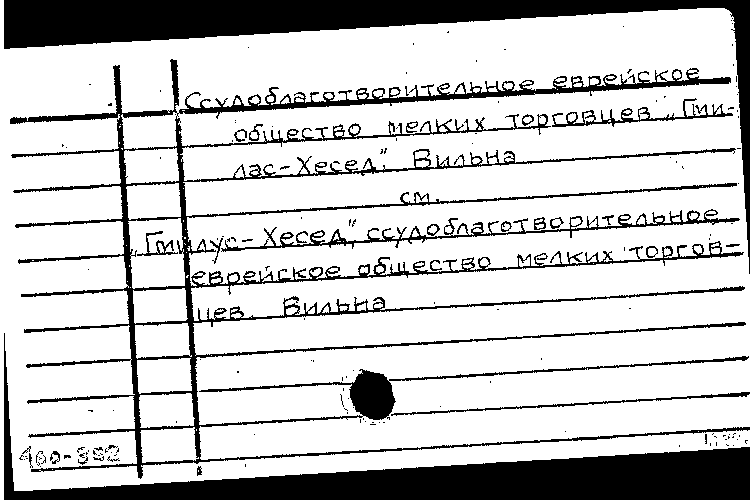 Ссудоблаготворительное еврейское
общество мелких торговцев „Гми-
лас-Хесед". Вильна
см.
„Гмилус-Хесед", ссудоблаготворительное
еврейское общество мелких торгов-
цев. Вильна